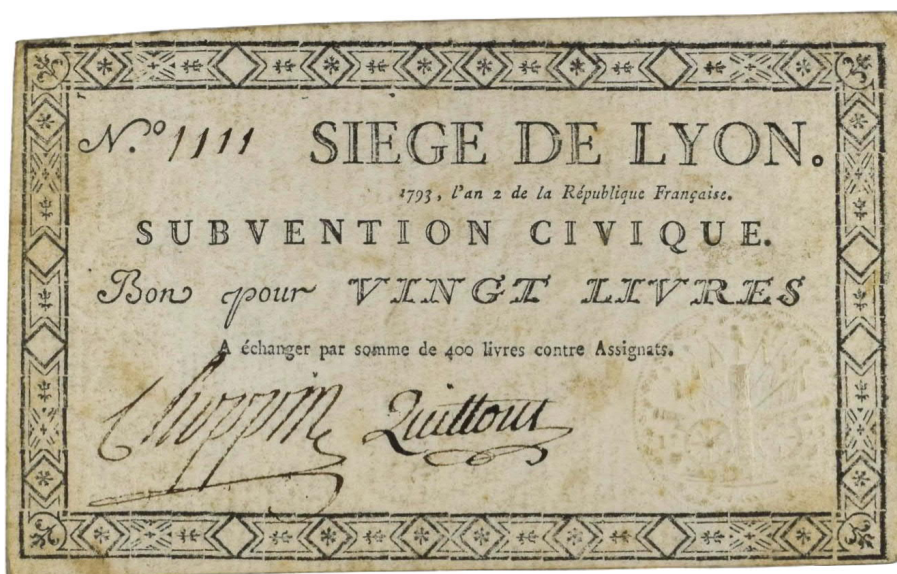 N.º 1111 SIEGE DE LYON.
1793, l'an 2 de la République Française.
SUBVENTION CIVIQUE.
Bon pour VINGT LIVRES
A échanger par somme de 400 livres contre Assignats.